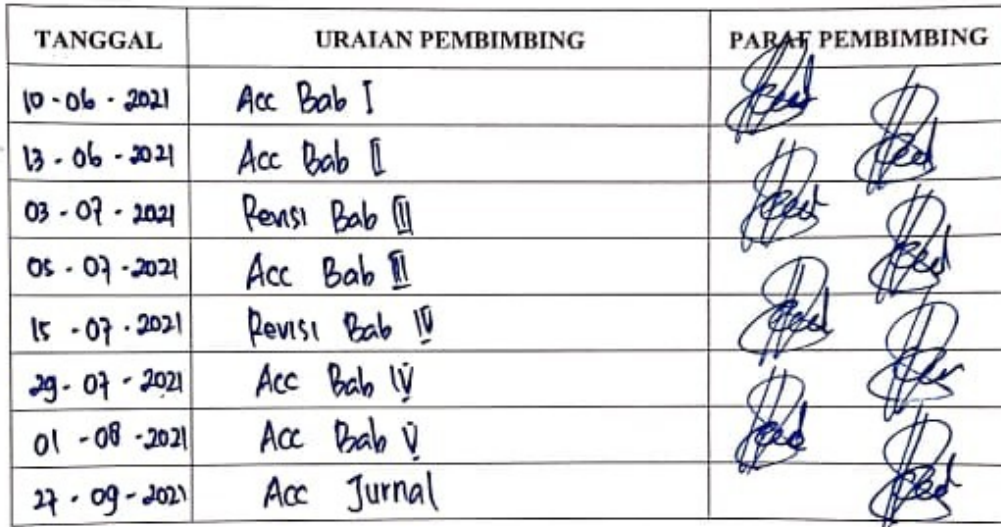 TANGGAL URAIAN PEMBIMBING PARAF PEMBIMBING
10-06-2021 Acc Bab I
13-06-2021 Acc Bab II
03-07-2021 Revisi Bab III
05-07-2021 Acc Bab III
15-07-2021 Revisi Bab IV
29-07-2021 Acc Bab IV
01-08-2021 Acc Bab V
27-09-2021 Acc Jurnal